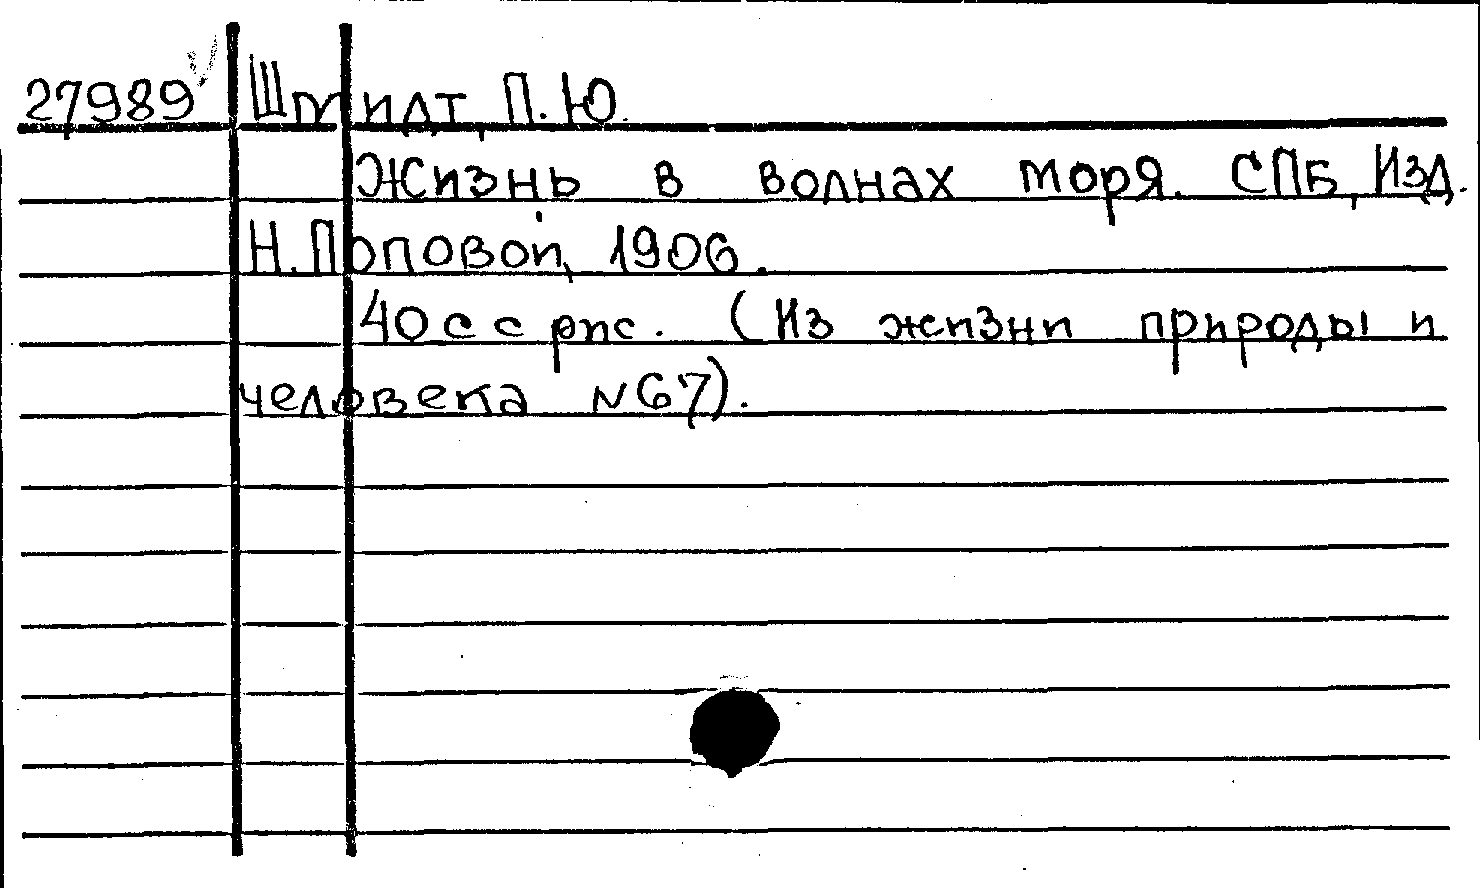 27989 Шмидт, П.Ю.
Жизнь в волнах моря. СПБ, Изд.
Н.Поповой, 1906.
40 с с рис. (Из жизни природы и
человека N67).